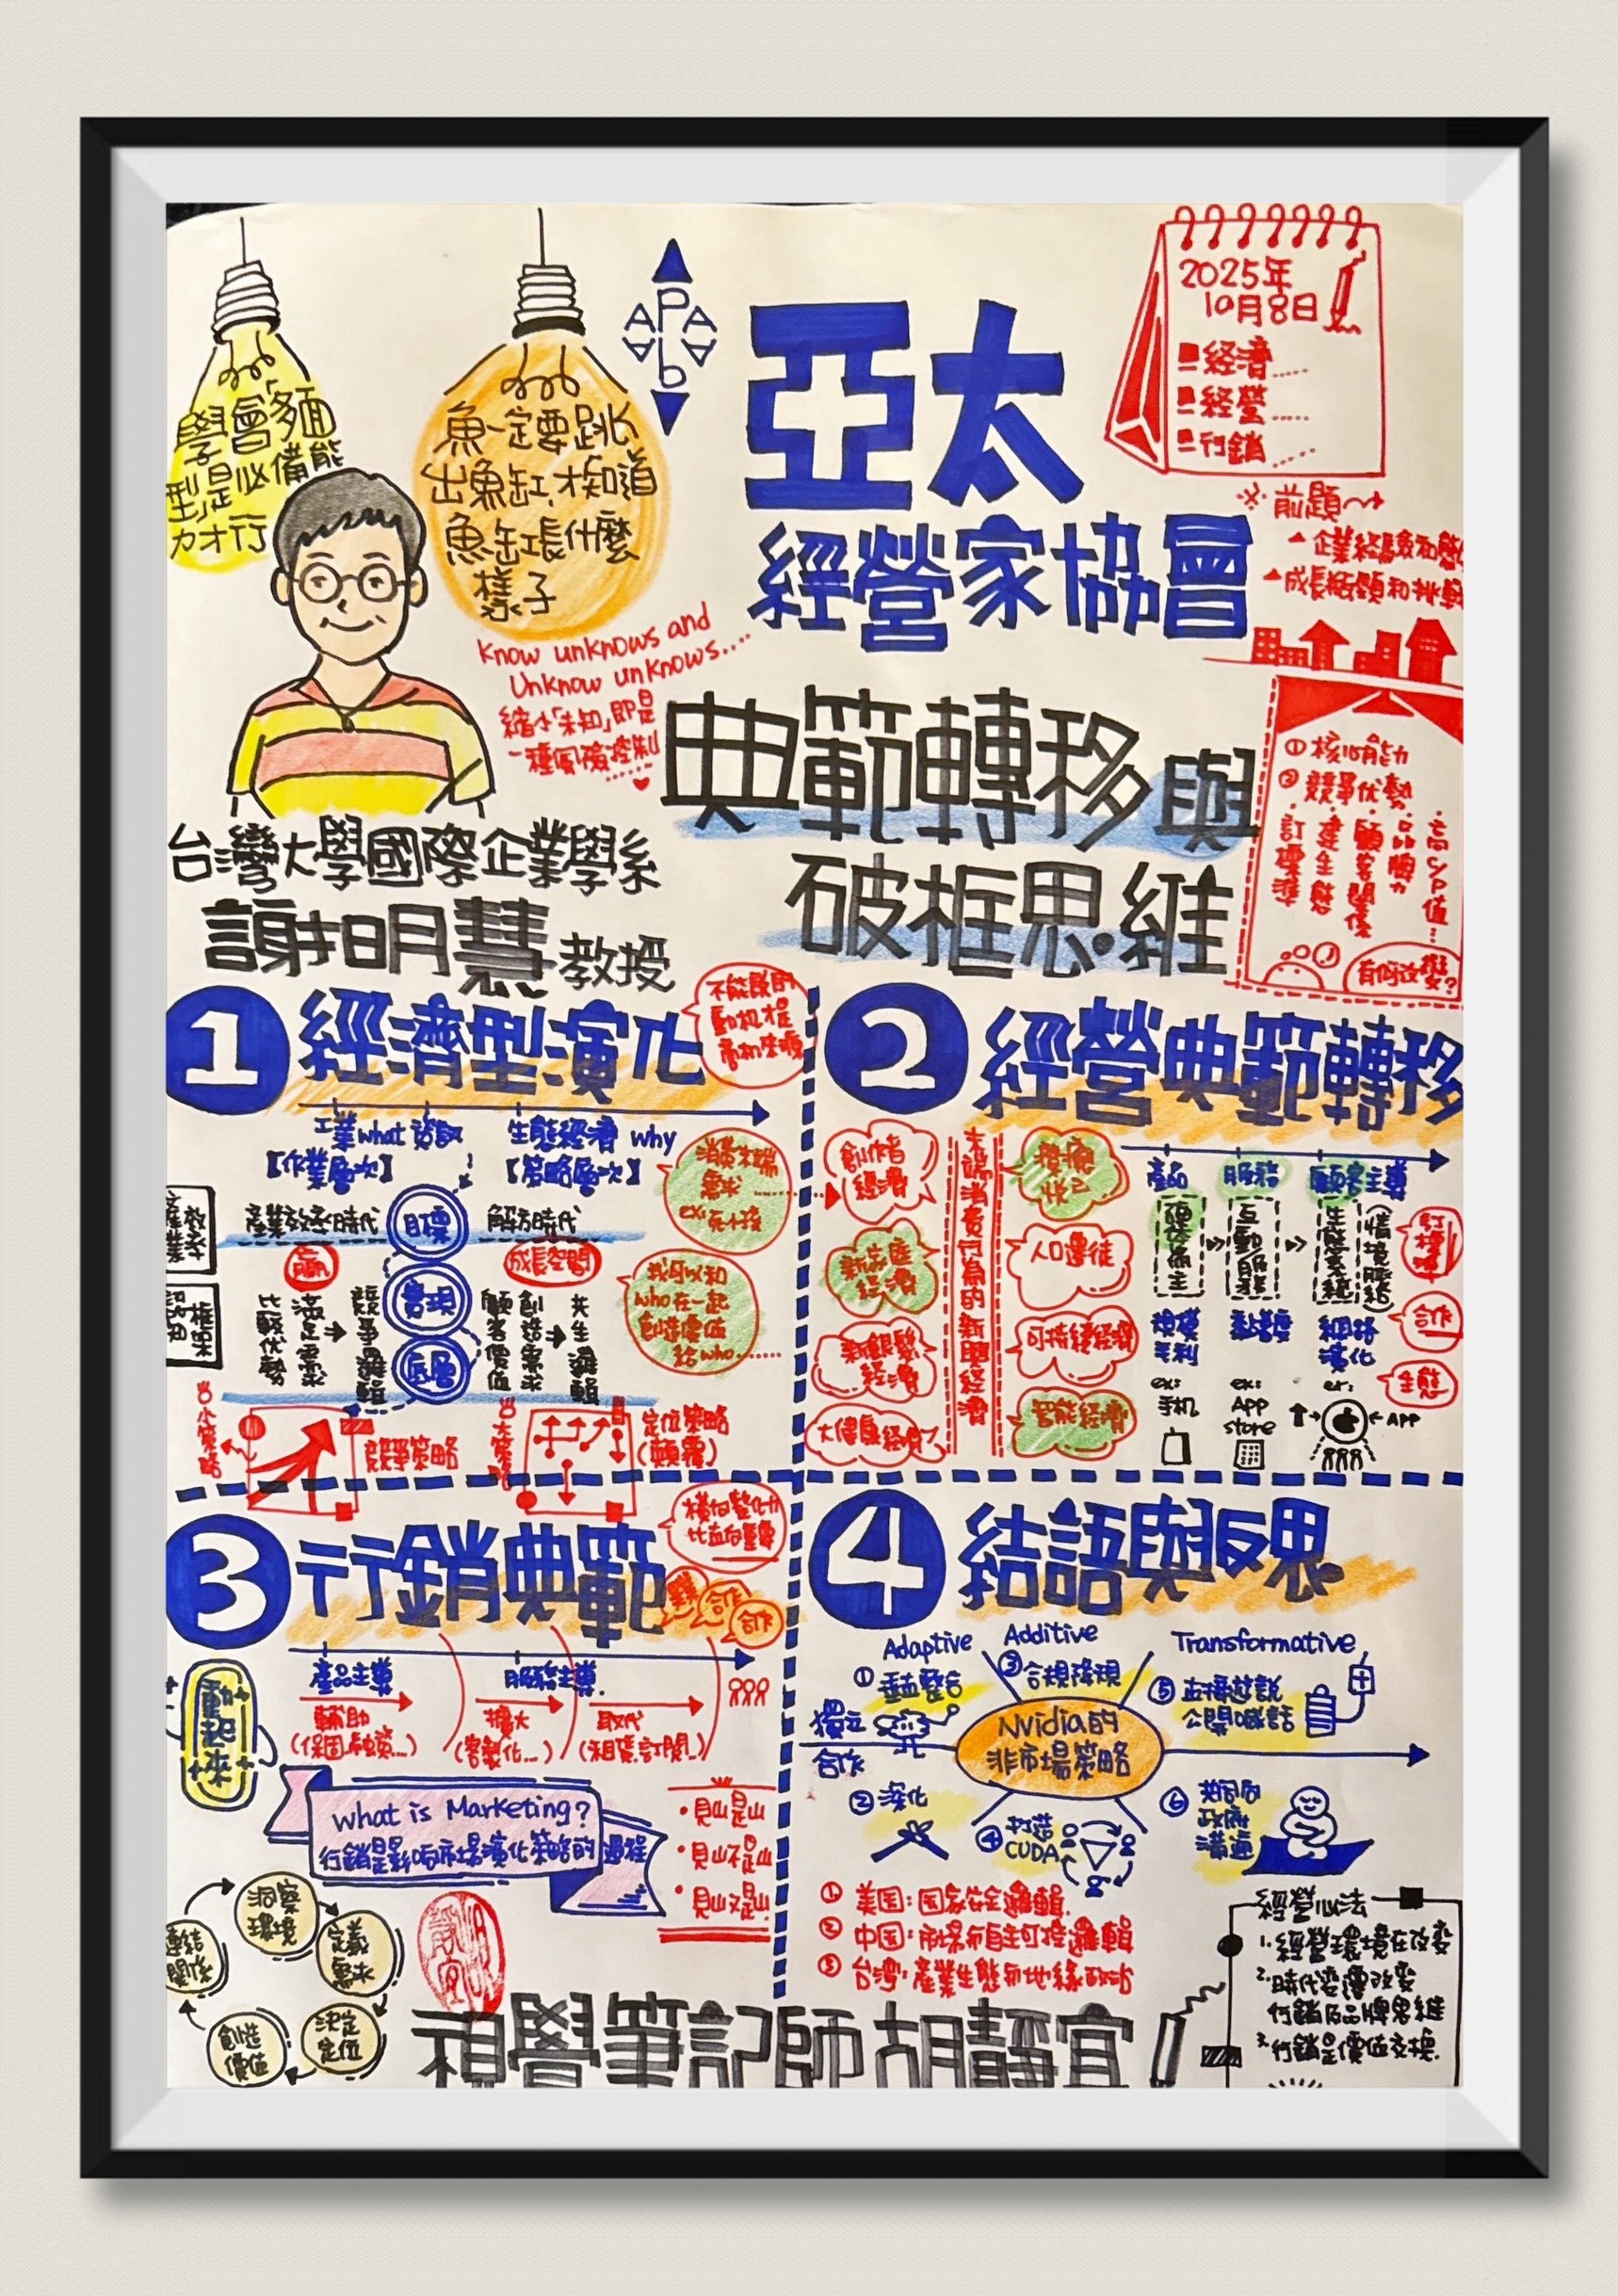 學會「麵
型」是必備能
力才行
魚一定要跳
出魚缸，才知道
魚缸長什麼
樣子
APAA
亞太
經營家協會
2025年
10月8日
經濟
經營
行銷
※前題
企業經驗和
成長瓶頸和挑戰
Know unknows and
Unknow unknows...
縮小「未知」即是
一種風險控制
典範轉移與
破框思維
①核心能力
②競爭优勢
・高CP值…
・品牌力
・顧客關係
・建生態
・訂標準
有何改變?
台灣大學國際企業學系
謝明慧教授
1 經濟型演化
工業what 資訊
【作業層次】
生態經濟 why
【策略層次】
消費末端
需求
產業效率時代
目標
解方時代
贏
成長空間
實現
底層
比較优勢
滿足需求
競爭邏輯
顧客價值
創造需求
共生邏輯
我可以和
who在一起
創造價值
給who……
小策略
競爭策略
大策略
定位策略
(顛覆)
2 經營典範轉移
創作者
經濟
新家庭
經濟
新銀髮
經濟
大健康經濟
末端消費行為的新興經濟
療癒
悅己
人口遷徙
可持續經濟
智能經濟
產品
服務
顧客主導
硬体為主
互動服務
生態系統
規模
毛利
黏著度
網路
演化
ex:
手机
ex:
App
store
ex:
APP
訂標準
合作
生態
3 行銷典範
橫向整合力
比垂向重要
競爭
合作
合作
產品主導
服務主導
輔助
(保固.融資...)
擴大
(客製化...)
取代
(租賃.訂閱..)
動起來
What is Marketing?
行銷是影响市場演化策略的過程
・見山是山
・見山不是山
・見山又是山
洞察
環境
定義
需求
決定
定位
創造
價值
連結
關係
4 結語與反思
Adaptive
Additive
Transformative
①垂直整合
③合規發現
⑤直接遊說
公開喊話
獨立
合作
Nvidia的
非市場策略
②深化
④打造
CUDA
⑥共同向
政府
溝通
①美国:国家安全邏輯.
②中国:市場和自主可控邏輯
③台湾:產業生態和地緣政治
經營心法
1.經營環境在改變
2.時代变遷改變
行銷及品牌思維
3.行銷是價值交換.
視覺筆記師胡靜宜